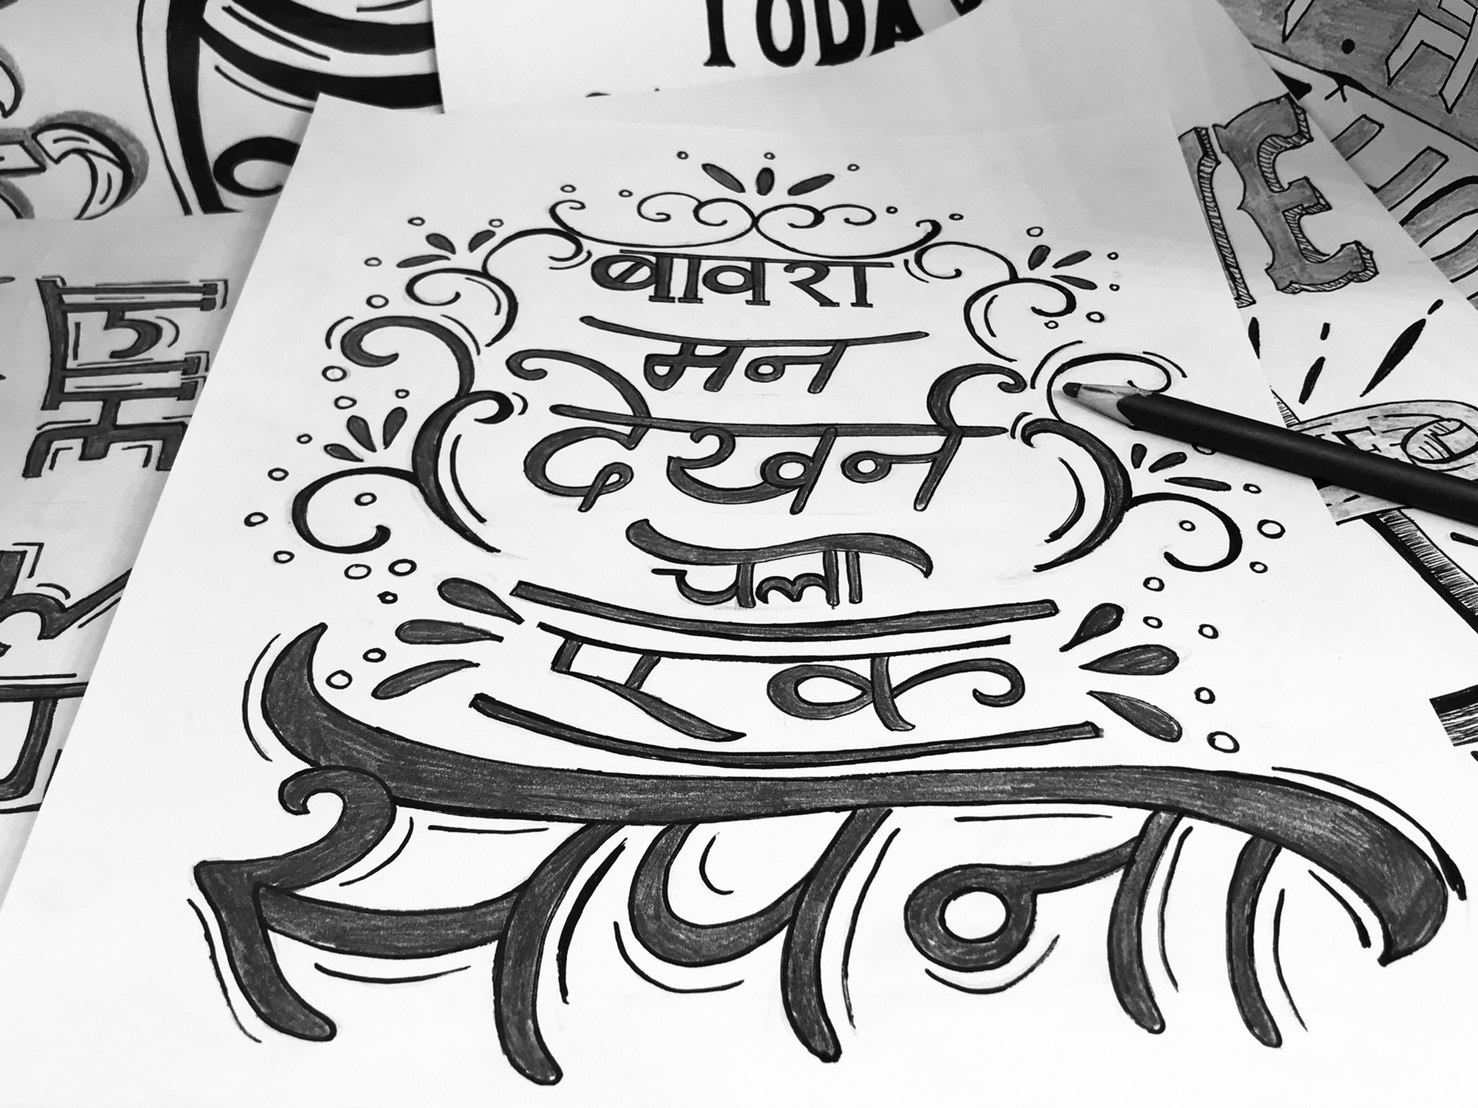 TODA
बावरा
मन
देखने
चला
एक
सपना